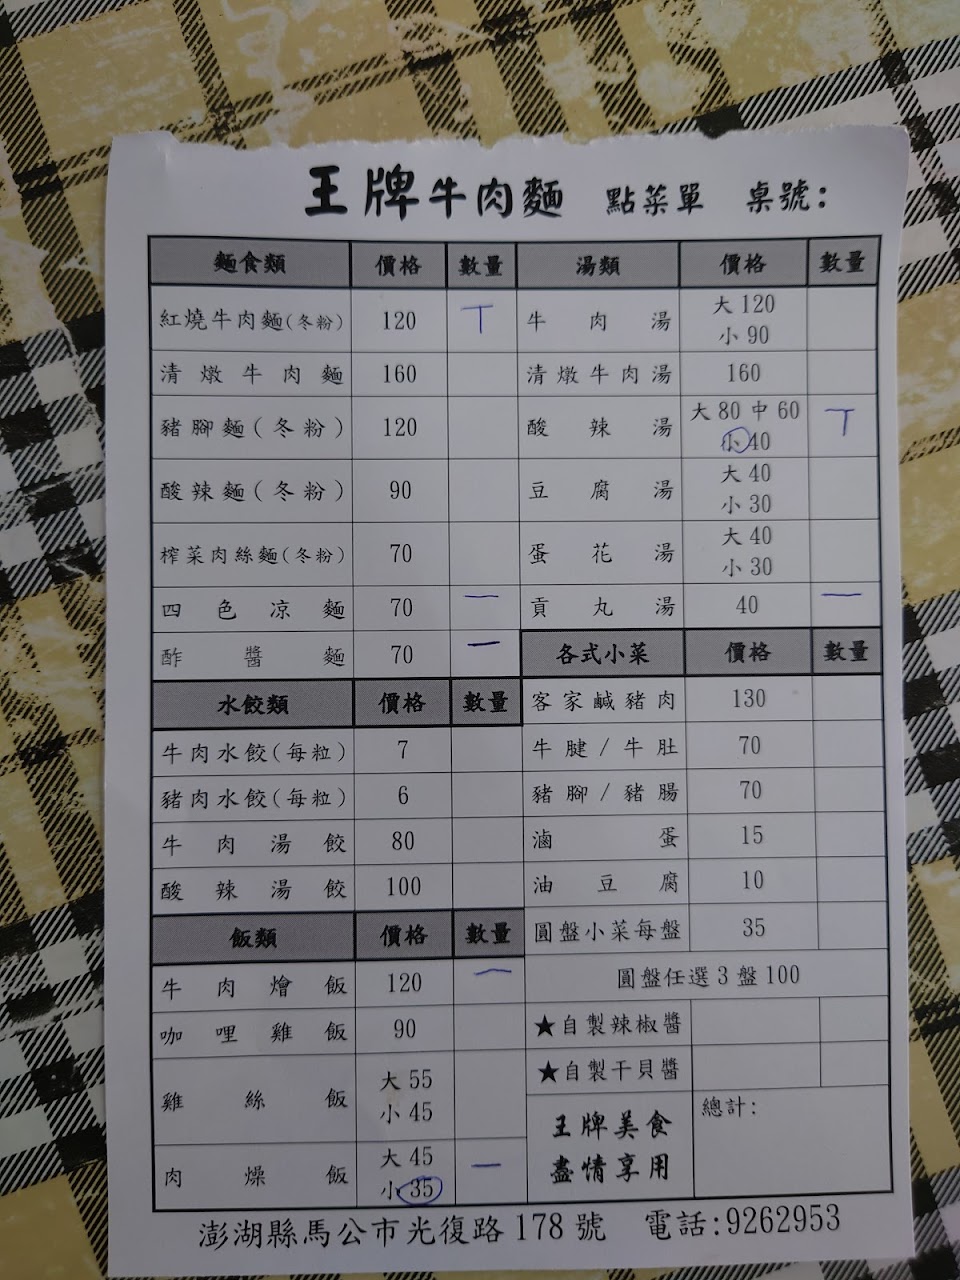 王牌牛肉麵 點菜單 桌號:
麵食類 價格 數量
紅燒牛肉麵(冬粉) 120 丅
清燉牛肉麵 160
豬腳麵(冬粉) 120
酸辣麵(冬粉) 90
榨菜肉絲麵(冬粉) 70
四色凉麵 70 一
酢醬麵 70 一
水餃類 價格 數量
牛肉水餃(每粒) 7
豬肉水餃(每粒) 6
牛肉湯餃 80
酸辣湯餃 100
飯類 價格 數量
牛肉燴飯 120 一
咖哩雞飯 90
雞絲飯 大 55
小 45
肉燥飯 大 45 一
小 35
湯類 價格 數量
牛肉湯 大 120
小 90
清燉牛肉湯 160
酸辣湯 大 80 中 60 丅
小 40
豆腐湯 大 40
小 30
蛋花湯 大 40
小 30
貢丸湯 40 一
各式小菜 價格 數量
客家鹹豬肉 130
牛腱/牛肚 70
豬腳/豬腸 70
滷蛋 15
油豆腐 10
圓盤小菜每盤 35
圓盤任選 3 盤 100
★自製辣椒醬
★自製干貝醬
王牌美食
盡情享用
總計:
澎湖縣馬公市光復路 178 號 電話:9262953